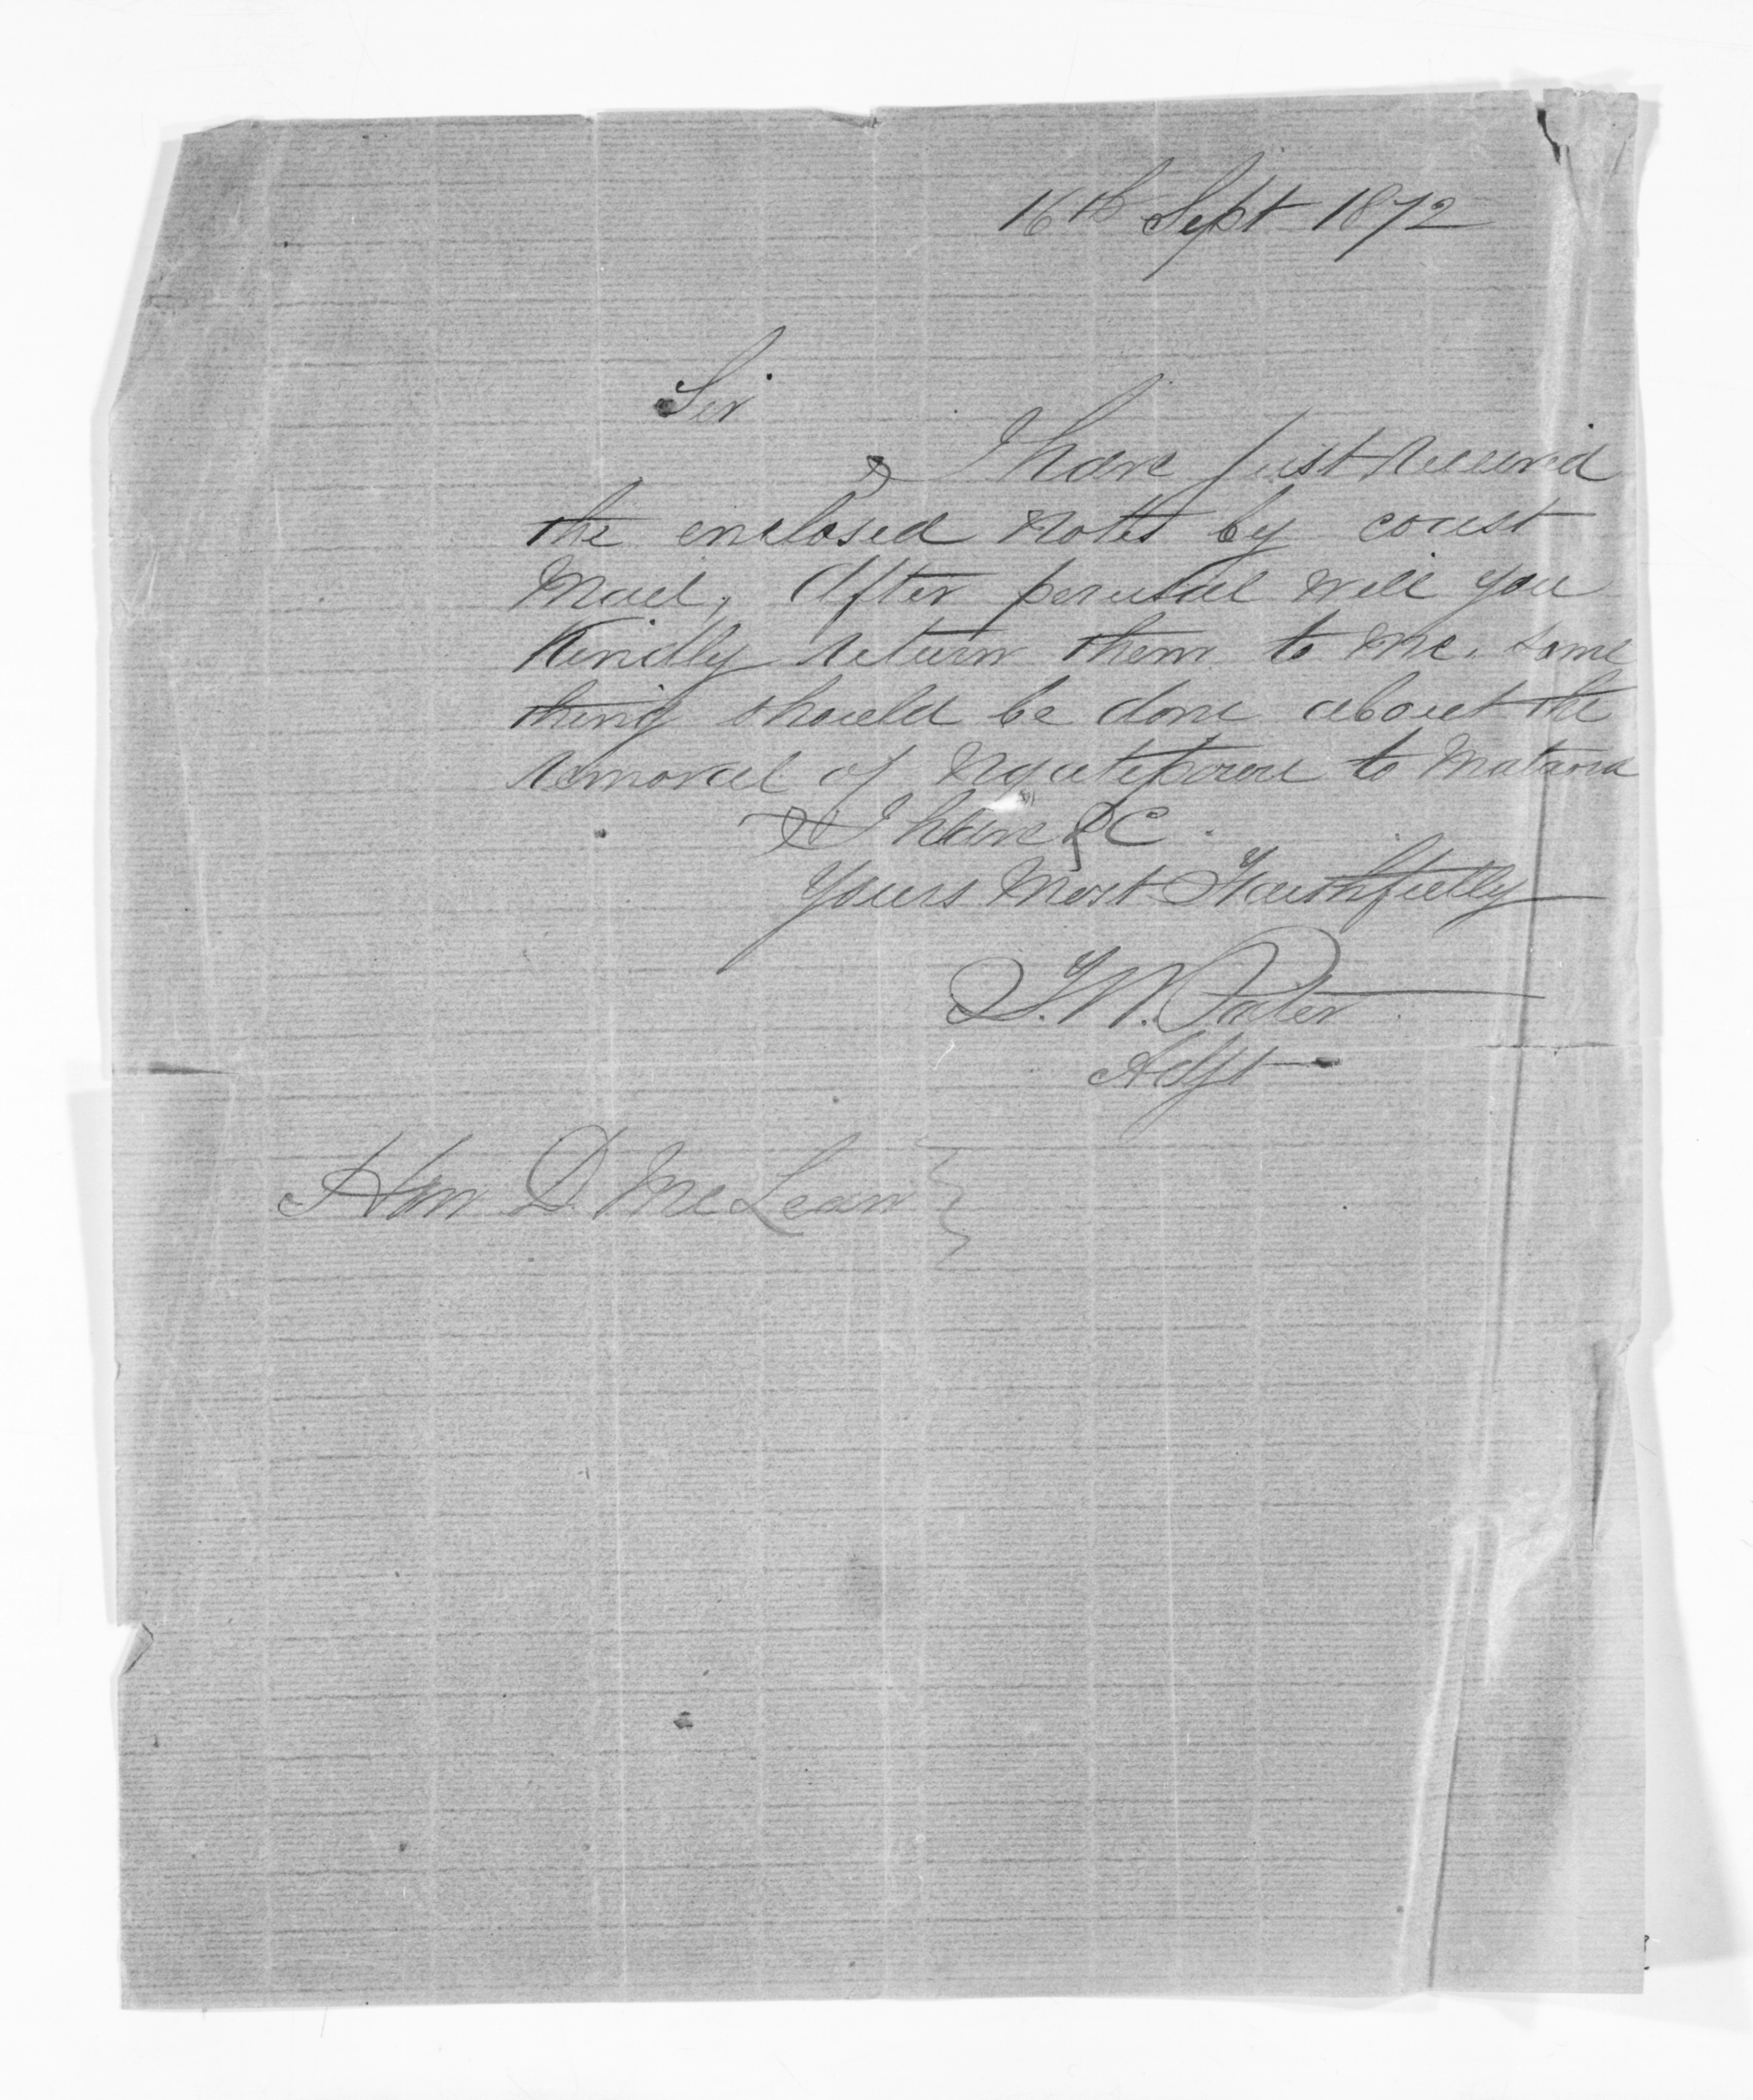 16th Sept 1872
Sir
I have just received
the enclosed notes by coast
Mail, After perusal will you
Kindly return them to me. some
thing should be done about the
removal of Ngatiporou to Mataora
I have &C.
Yours Most Faithfully
F. W. Porter
Adjt
Hon D. McLean